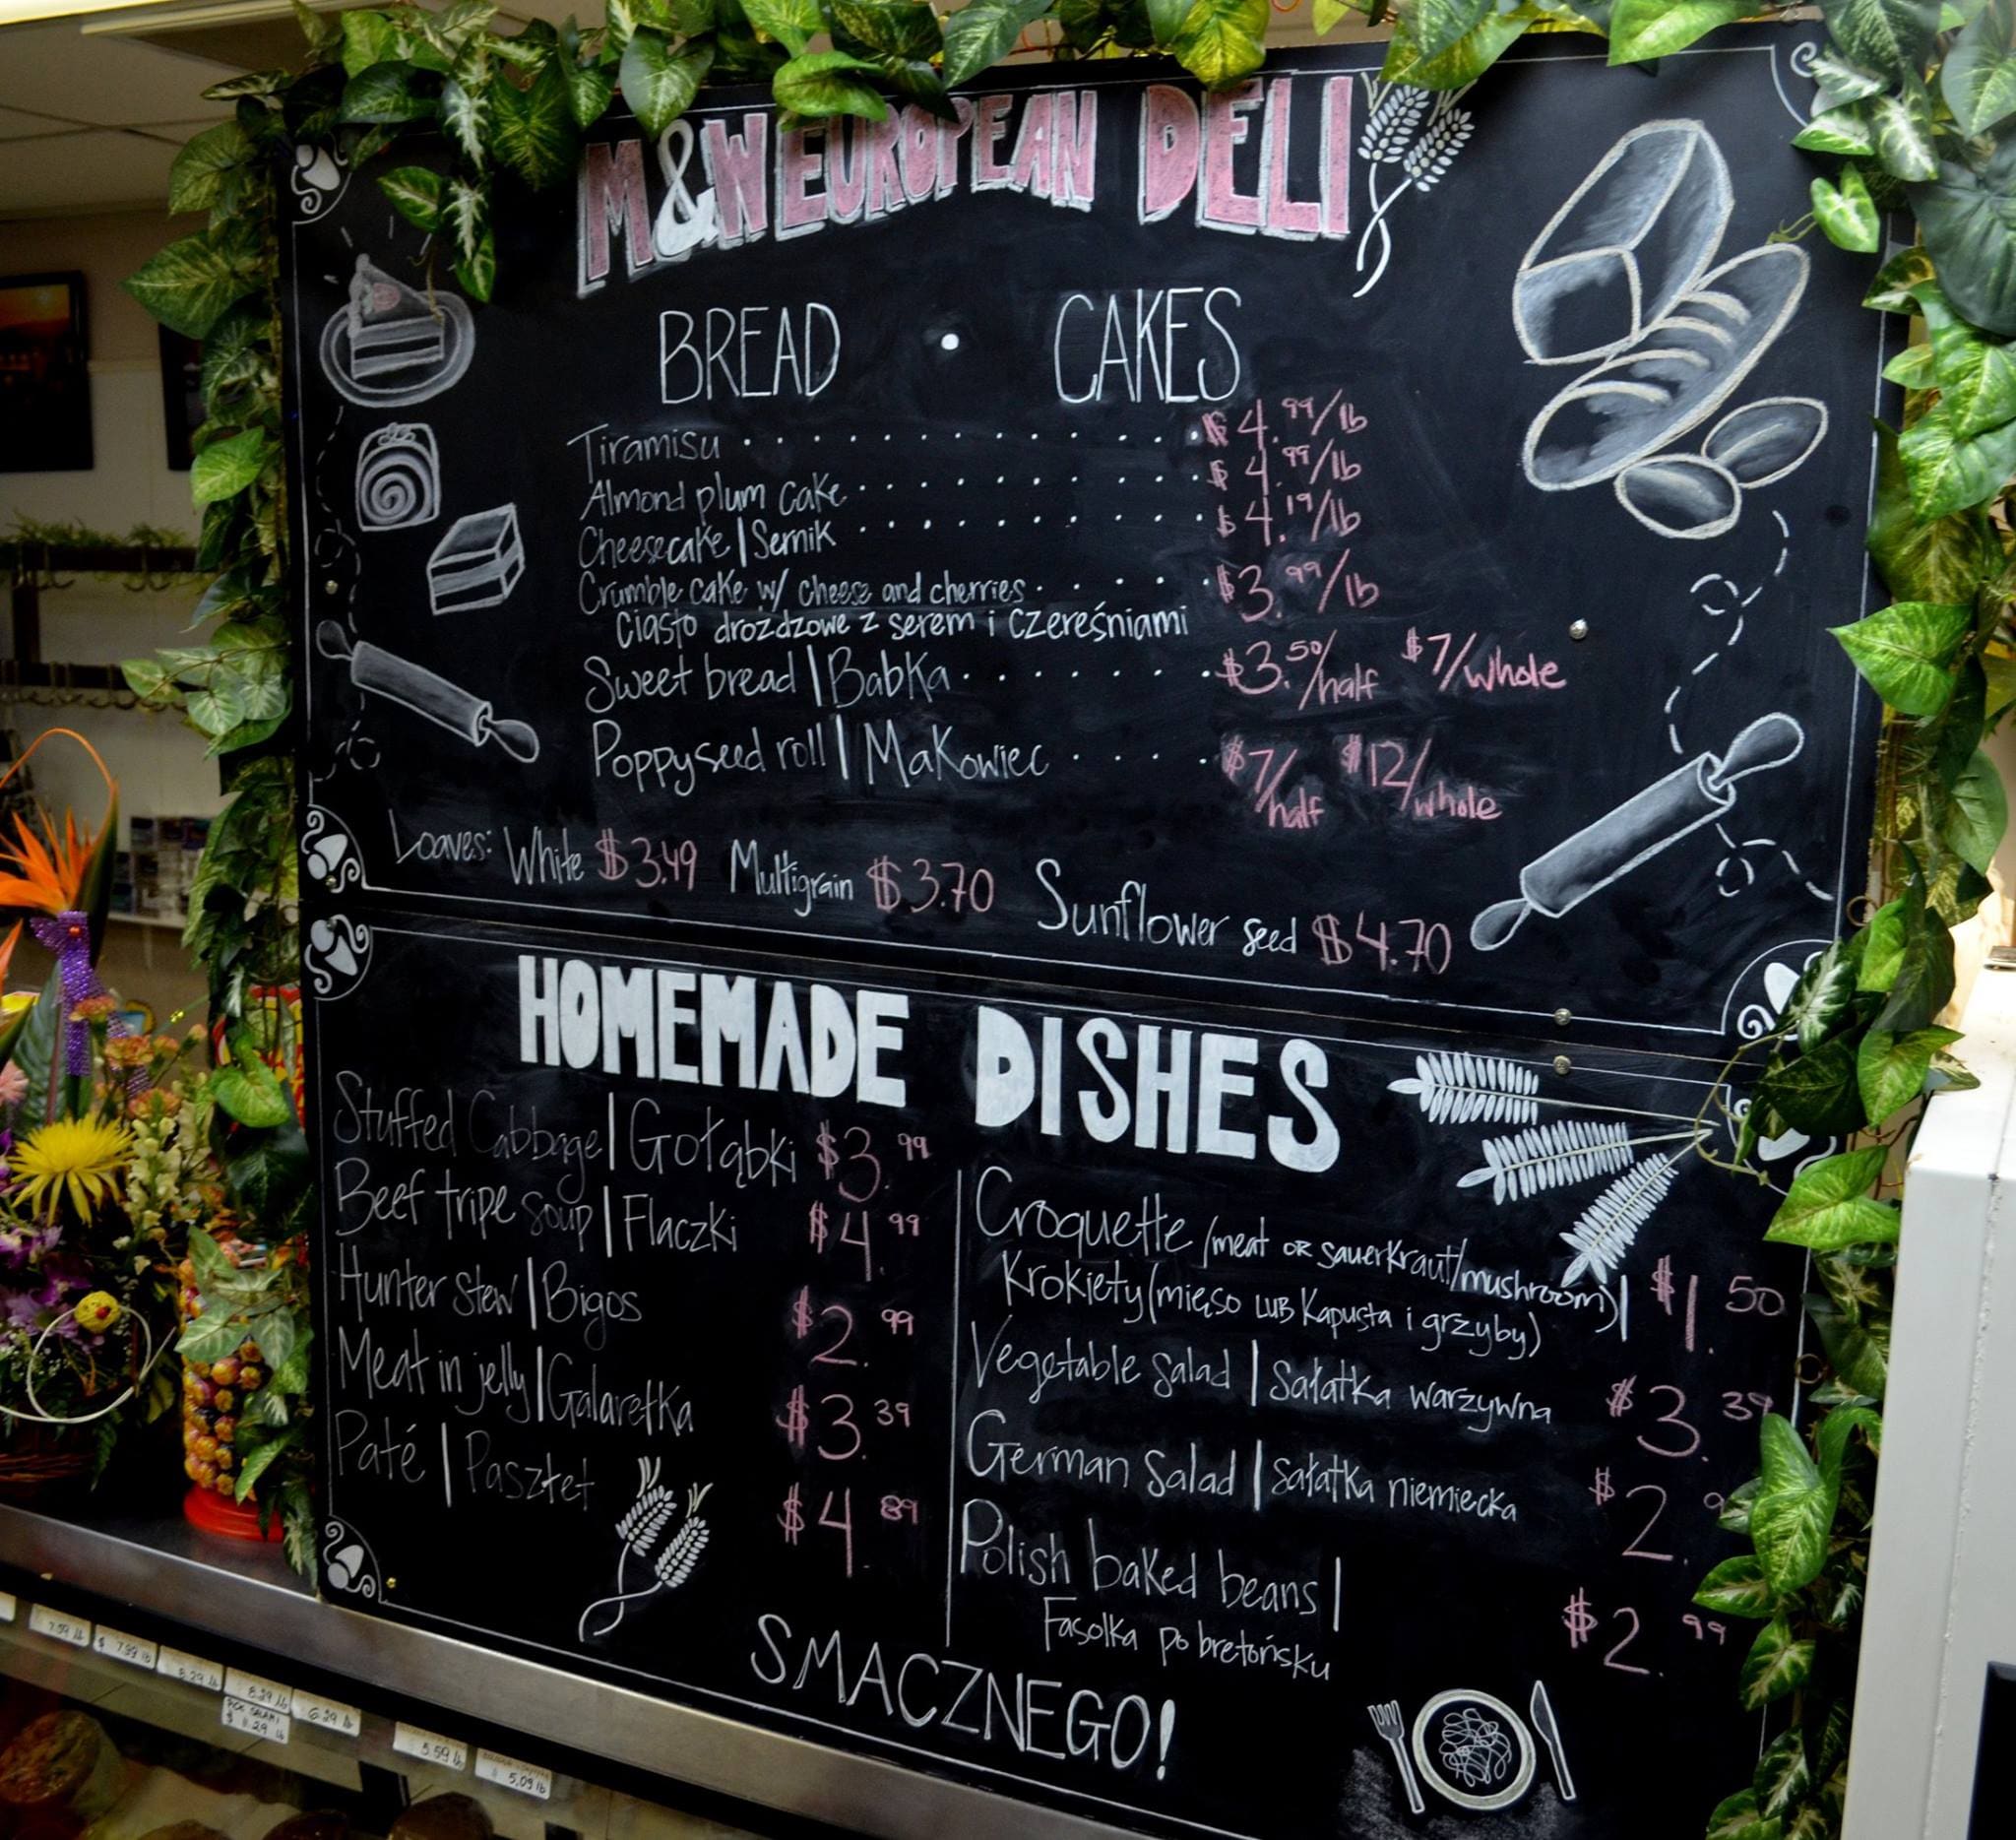 M&W EUROPEAN DELI
BREAD • CAKES
Tiramisu . . . . . . . . . . . . . . $4.99/lb
Almond plum cake . . . . . . . . . . . $4.99/lb
Cheesecake | Sernik . . . . . . . . . . . $4.19/lb
Crumble cake w/ cheese and cherries . . . . . $3.99/lb
Ciasto drożdzowe z serem i czereśniami
Sweet bread | Babka . . . . . . . $3.50/half $7/whole
Poppyseed roll | Makowiec . . . . $7/half $12/whole
Loaves: White $3.49 Multigrain $3.70 Sunflower seed $4.70
HOMEMADE DISHES
Stuffed Cabbage | Gołąbki $3.99
Beef tripe soup | Flaczki $4.99
Hunter stew | Bigos $2.99
Meat in jelly | Galaretka $3.39
Paté | Pasztet $4.89
Croquette (meat or sauerkraut/mushroom) | $1.50
Krokiety (mięso lub kapusta i grzyby)
Vegetable salad | Sałatka warzywna $3.39
German Salad | Sałatka niemiecka $2.9
Polish baked beans |
Fasolka po bretońsku $2.99
SMACZNEGO!
7.59 lb
$ 7.99 lb
8.29 lb
8.29 lb
6.29 lb
SALAMI
$ 11.29 lb
5.59 lb
$ 5.09 lb